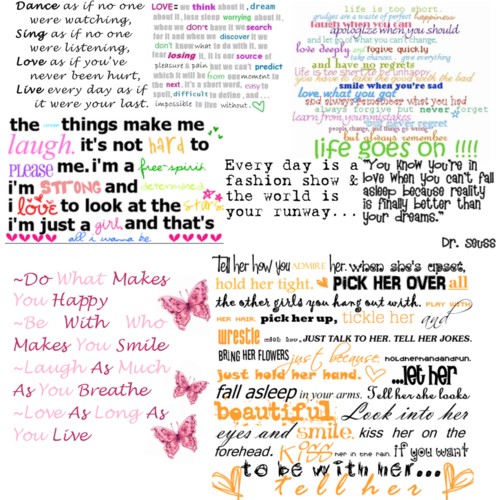 Dance as if no one
were watching,
Sing as if no one
were listening,
Love as if you've
never been hurt,
Live every day as if
it were your last.
LOVE= we think about it, dream
about it, lose sleep worrying about it.
when we don't have it we search
for it and when we discover it we
don't know what to do with it. we
fear losing it. it is our source of
pleasure & pain. but we can't predict
which it will be from one moment to
the next. it's a short word, easy to
spell, difficult to define, and . . .
impossible to live without.
life is too short.
grudges are a waste of perfect happiness
laugh when you can
apologize when you should
and let go of what you can't change.
love deeply and forgive quickly
take chances. give everything
and have no regrets
life is too short to be unhappy.
you have to take the good with the bad
smile when you're sad
love what you got
and always remember what you had
always forgive but never forget
learn from your mistakes
people change, and things go wrong
but always remember
life goes on !!!!
the things make me
laugh. it's not hard to
PLEASE me. i'm a free-spirit
i'm STRONG and determined
i love to look at the stars
i'm just a girl, and that's
all i wanna be
Every day is a
fashion show &
the world is
your runway...
"You know you're in
love when you can't fall
asleep because reality
is finally better than
your dreams."
Dr. Seuss
~Do What Makes
You Happy
~Be With Who
Makes You Smile
~Laugh As Much
As You Breathe
~Love As Long As
You Live
Tell her how you ADMIRE her. when she's upset,
hold her tight. PICK HER OVER all
the other girls you hang out with. PLAY WITH
HER HAIR. pick her up, tickle her and
wrestle with her, JUST TALK TO HER. TELL HER JOKES.
BRING HER FLOWERS just because. holdherhandandrun.
just hold her hand. ...let her
fall asleep in your arms. Tell her she looks
beautiful. Look into her
eyes and smile, kiss her on the
forehead. Kiss her in the rain. if you want
to be with her...
tell her